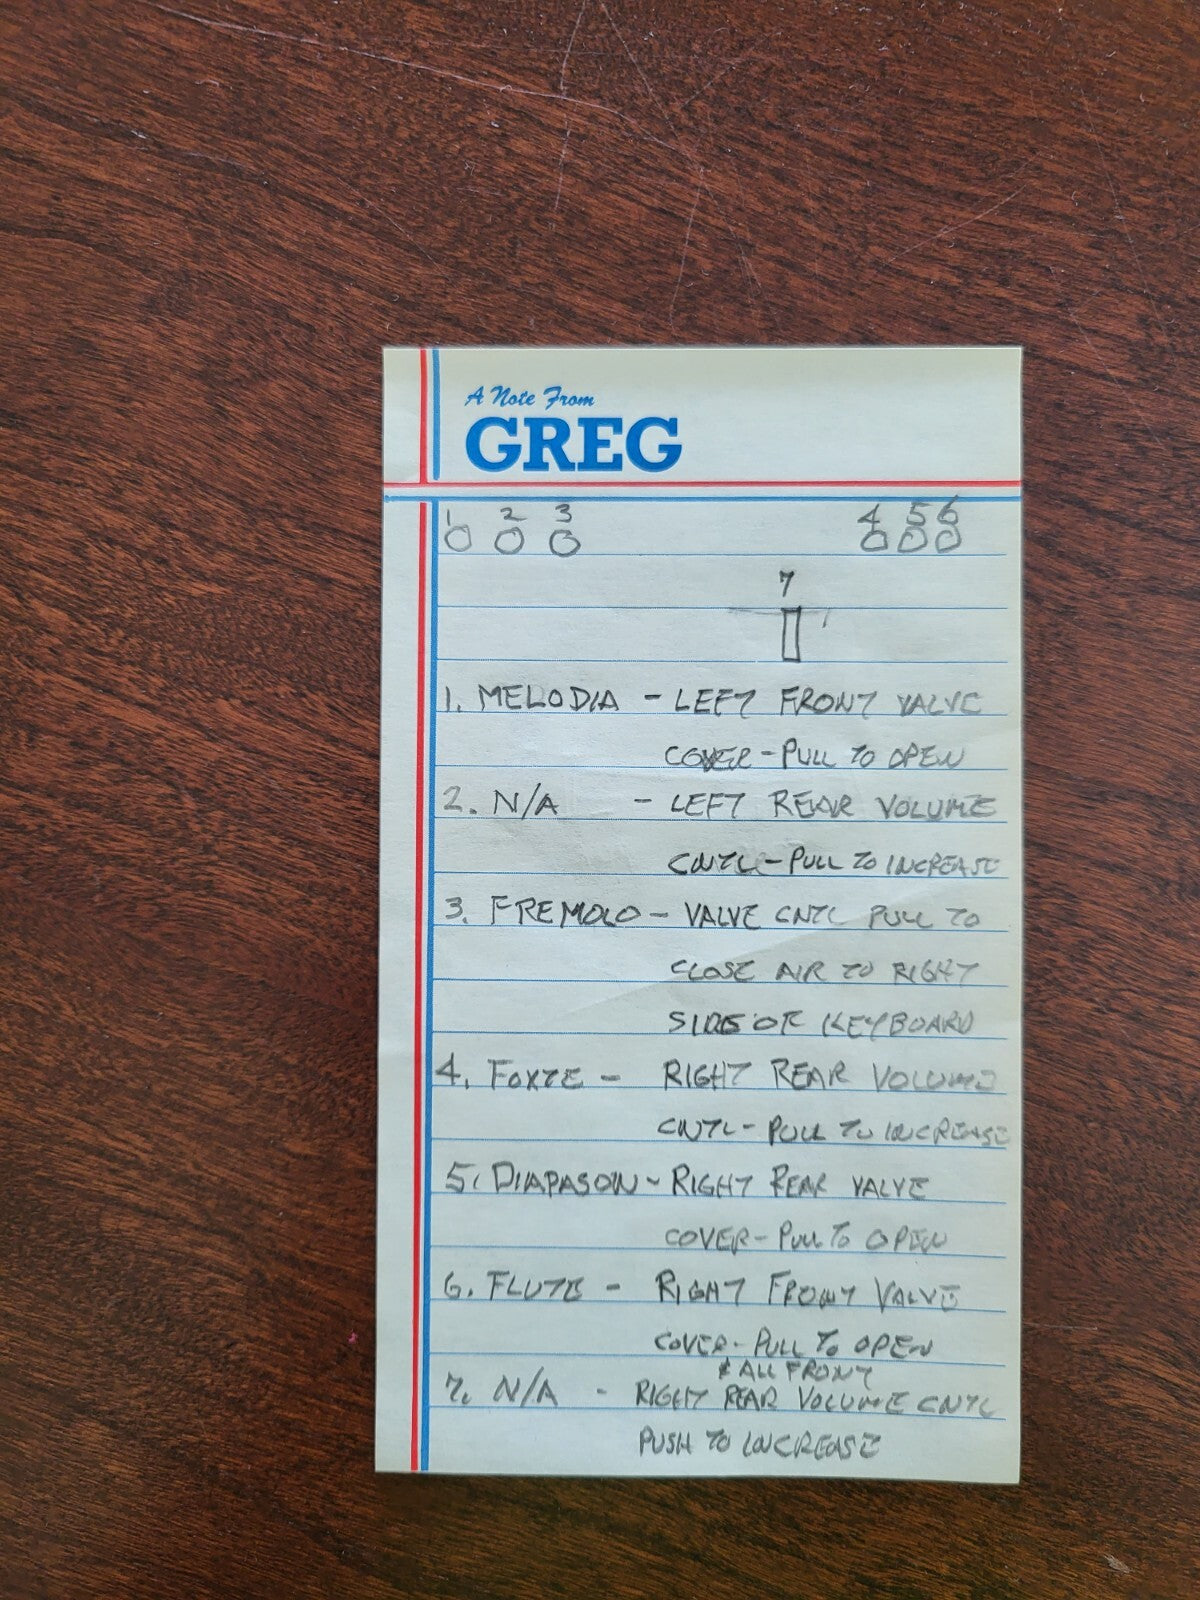 A Note From
GREG
1 2 3 4 5 6
7
1. MELODIA - LEFT FRONT VALVE
COVER - PULL TO OPEN
2. N/A - LEFT REAR VOLUME
CNTL - PULL TO INCREASE
3. FREMOLO - VALVE CNTL PULL TO
CLOSE AIR TO RIGHT
SIDE OF KEYBOARD
4. FORTE - RIGHT REAR VOLUME
CNTL - PULL TO INCREASE
5. DIAPASON - RIGHT REAR VALVE
COVER - PULL TO OPEN
6. FLUTE - RIGHT FRONT VALVE
COVER - PULL TO OPEN
& ALL FRONT
7. N/A - RIGHT REAR VOLUME CNTL
PUSH TO INCREASE